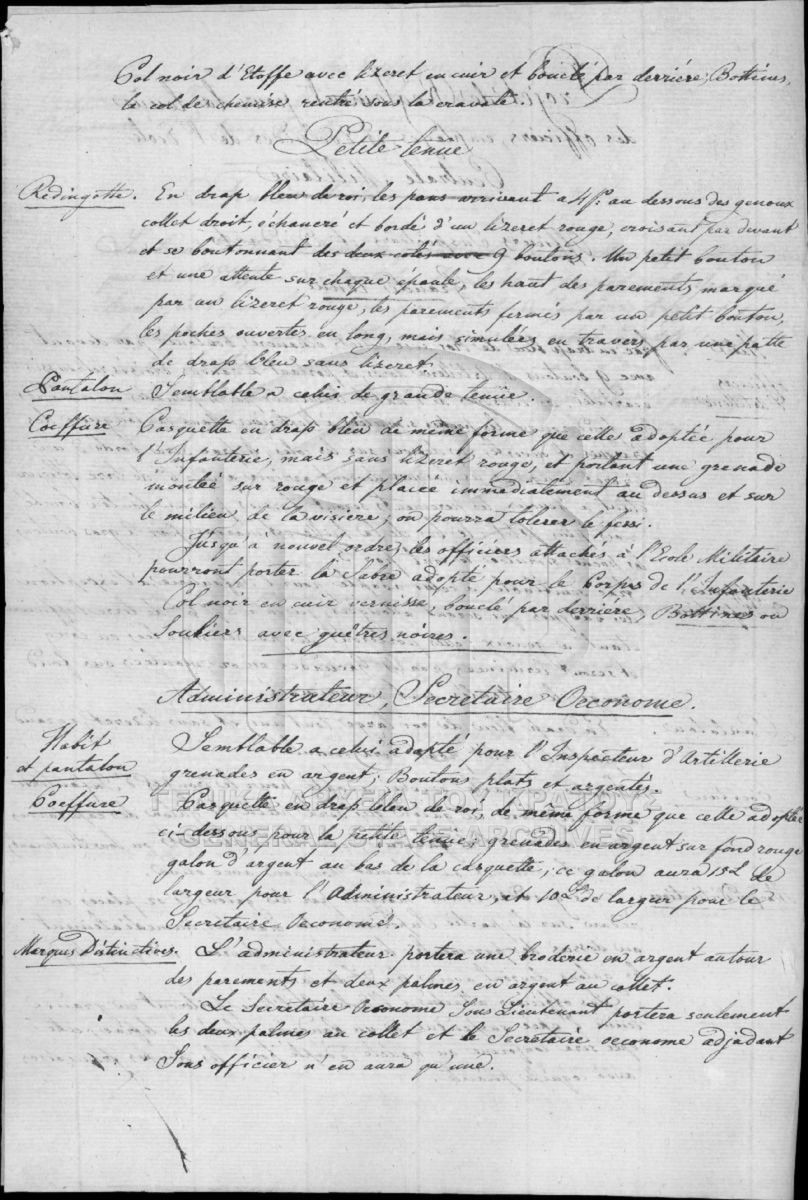 Col noir d'Etoffe avec lizeret en cuir et bouclé par derrière, Bottines,
le col de chemise rentré sous la cravate.
Petite tenue
Redingotte. En drap bleu de roi, les pans arrivant a 4 p. au dessous des genoux
collet droit, échancré et bordé d'un lizeret rouge, croisant par devant
et se boutonnant des deux cotés avec 9 boutons. Un petit bouton
et une attente sur chaque épaule, les haut des parements marqué
par un lizeret rouge, les parements fermés par un petit bouton,
les poches ouvertes en long, mais simulées en travers par une patte
de drap bleu sans lizeret;
Pantalon Semblable a celui de grande tenüe.
Coeffure Casquette en drap bleu de même forme que celle adoptée pour
l'Infanterie, mais sans lizeret rouge, et portant une grenade
montée sur rouge et placée immédiatement au dessus et sur
le milieu de la visiere; on pourra tolerer le fessi.
Jusqu'à nouvel ordre, les officiers attachés à l'Ecole Militaire
pourront porter le Sabre adopté pour le Corps de l'Infanterie
Col noir en cuir vernisse, bouclé par derriere, Bottines ou
Souliers avec guêtres noires.
Administrateur, Secretaire Oeconome.
Habit
et pantalon
Semblable a celui adapté pour l'Inspecteur d'Artillerie
grenades en argent; Boutons plats et argentés.
Coeffure Casquette en drap bleu de roi, de même forme que celle adoptée
ci-dessous pour la petite tenüe; grenades en argent sur fond rouge
galon d'argent au bas de la casquette; ce galon aura 15 L de
largeur pour l'Administrateur, et 10 L de largeur pour le
Secretaire Oeconome.
Marques Distinctives. L'administrateur portera une broderie en argent autour
des parements et deux palmes en argent au collet.
Le Secretaire Oeconome Sous Lieutenant portera seulement
les deux palmes au collet et le Secretaire oeconome adjudant
Sous officier n'en aura qu'une.
ΓΕΝΙΚΑ ΑΡΧΕΙΑ ΤΟΥ ΚΡΑΤΟΥΣ
GENERAL STATE ARCHIVES